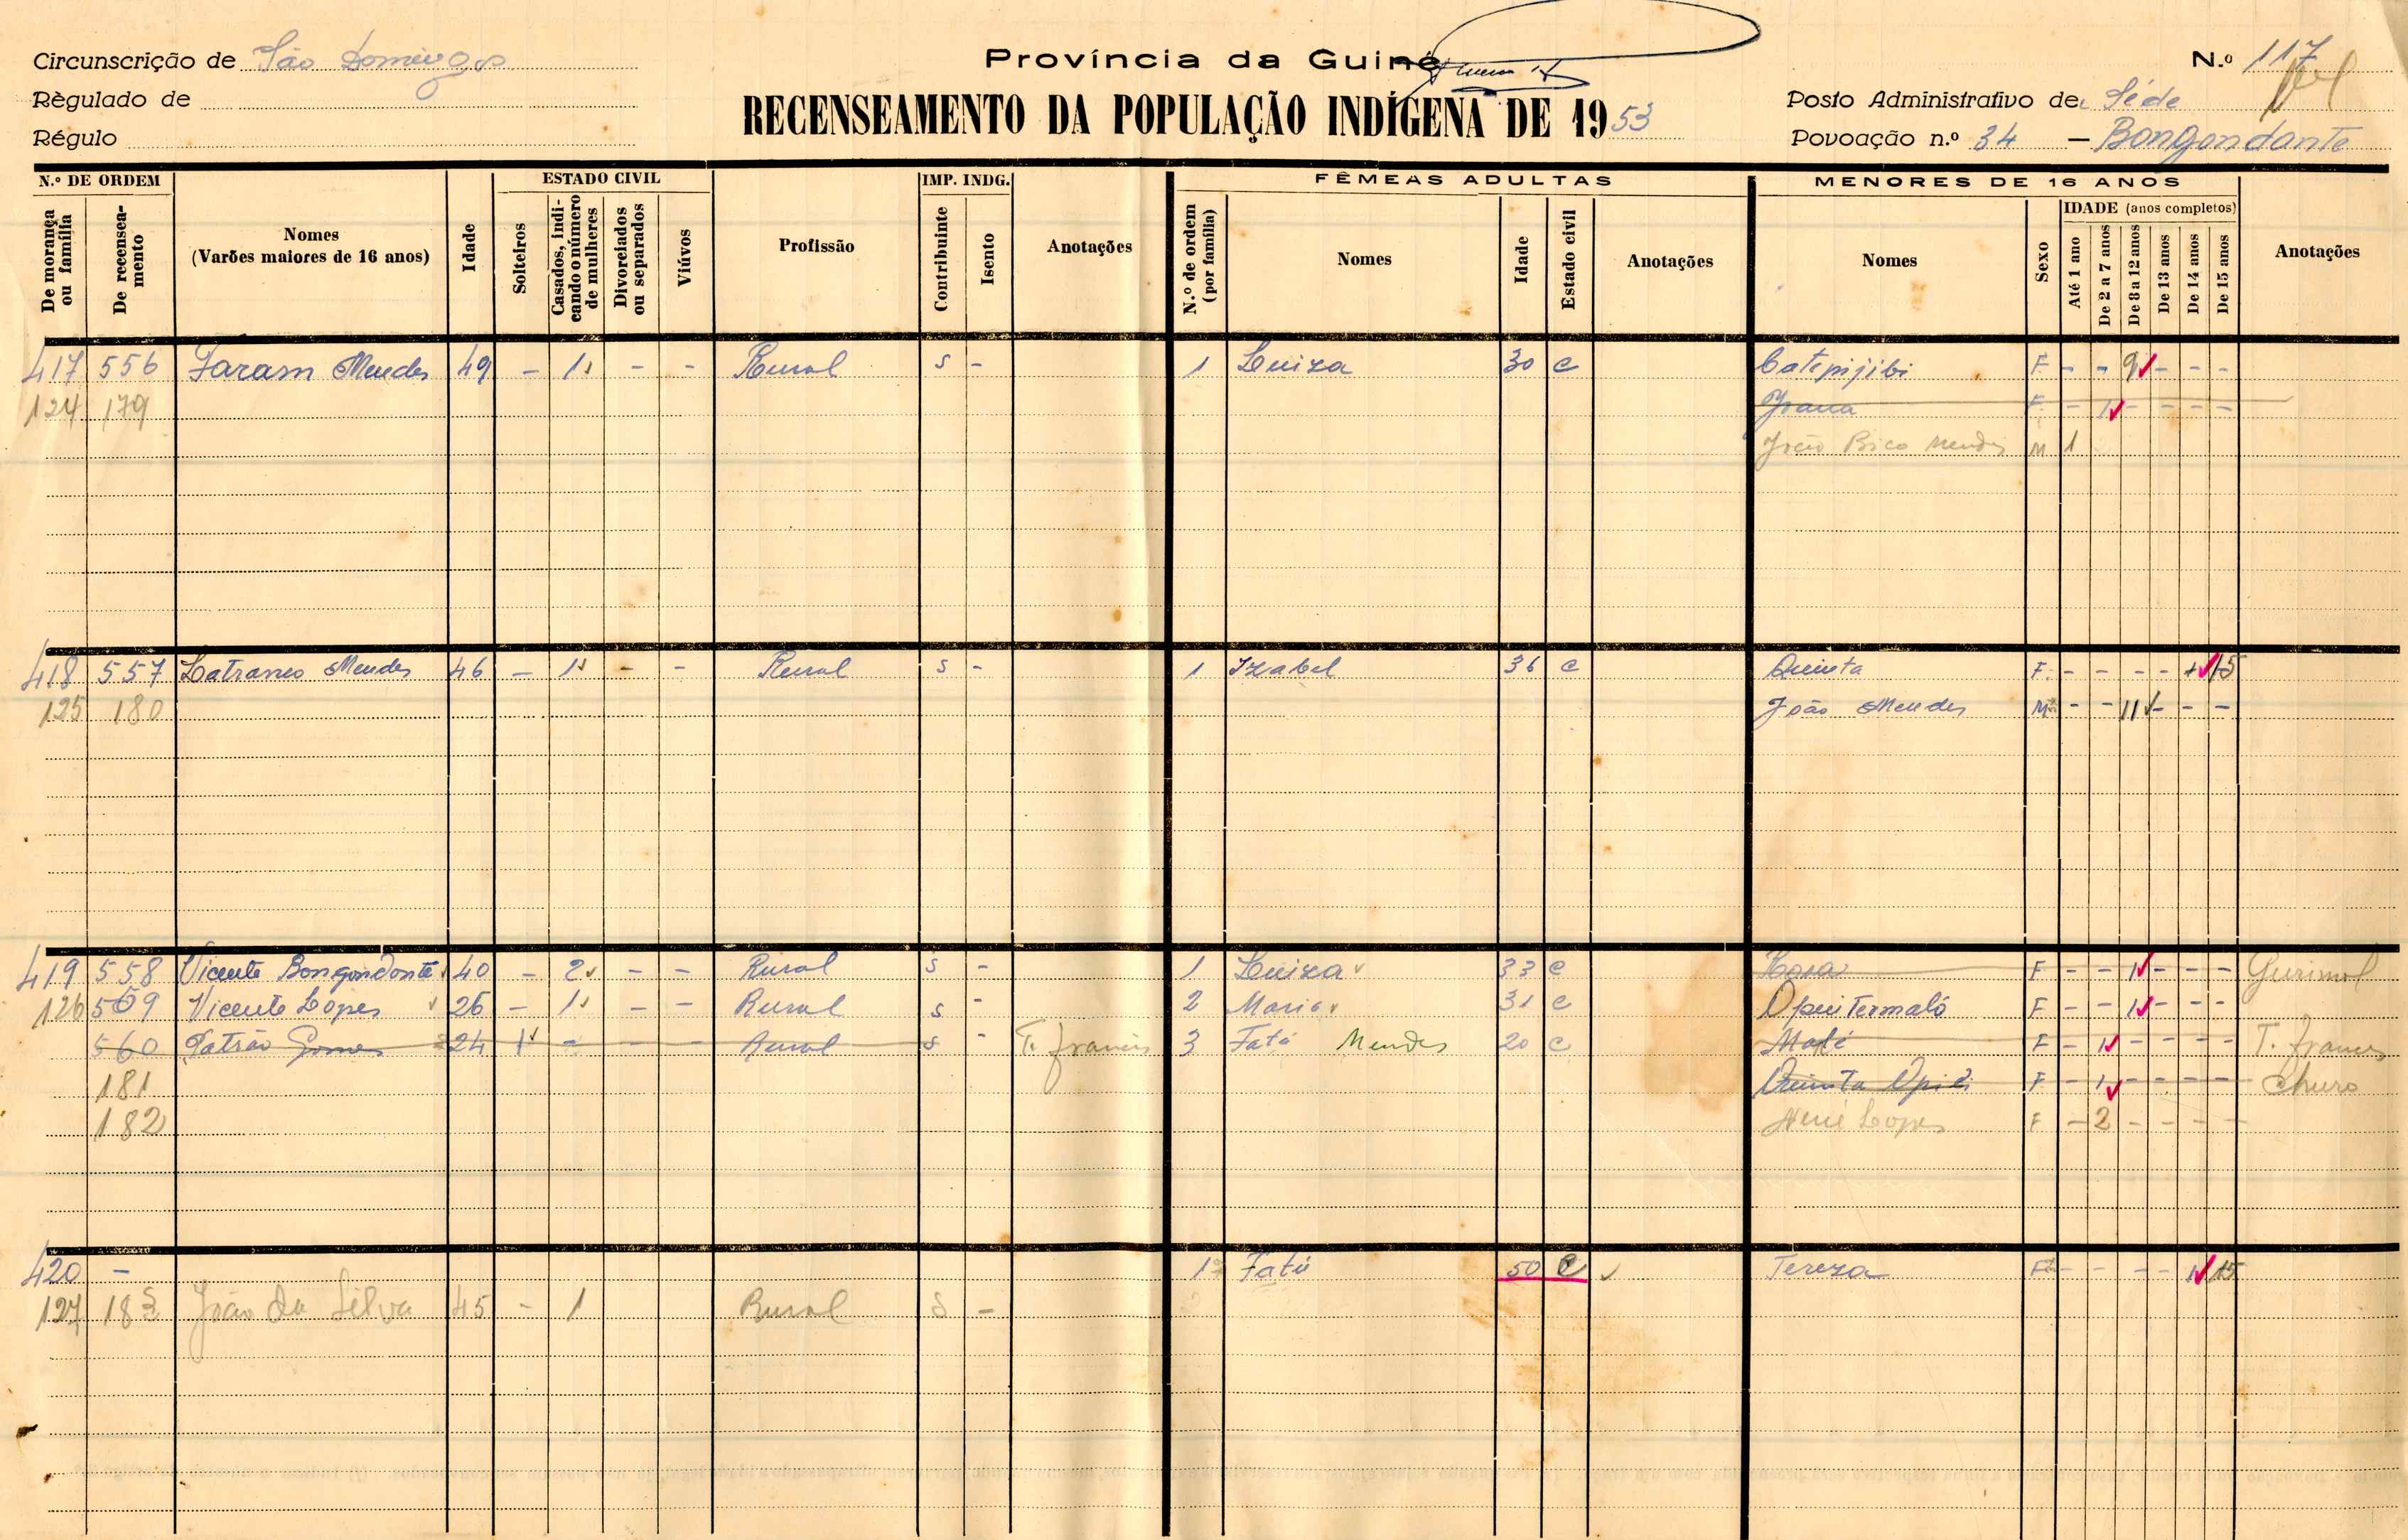 Circunscrição de São Domingos
Règulado de
Régulo
Província da Guiné
RECENSEAMENTO DA POPULAÇÃO INDÍGENA DE 1953
N.º 117
Posto Administrativo de Séde
Povoação n.º 34 — Bongondante
N.º DE ORDEM ESTADO CIVIL IMP. INDG. FÊMEAS ADULTAS MENORES DE 16 ANOS
De morança ou família
De recenseamento
Nomes
(Varões maiores de 16 anos)
Idade
Solteiros
Casados, indicando o número de mulheres
Divorciados ou separados
Viúvos
Profissão
Contribuinte
Isento
Anotações
N.º de ordem (por família)
Nomes
Idade
Estado civil
Anotações
Nomes
Sexo
IDADE (anos completos)
Até 1 ano
De 2 a 7 anos
De 8 a 12 anos
De 13 anos
De 14 anos
De 15 anos
Anotações
417 556 Faram Mendes 49 - 1 - - Rural S - 1 Luiza 30 C Catepijibi F - - 9 - - -
124 179 Joana F - 1 - - - -
João Bico Mendes M 1
418 557 Mendes 46 - 1 - - Rural S - 1 Izabel 36 C Quinta F - - - - 15
125 180 João Mendes M - - 11 - - -
419 558 Vicente Bongondante 40 - 2 - - Rural S - 1 Luiza 33 C Rosa F - - 1 - - -
126 559 Vicente Lopes 26 - 1 - - Rural S - 2 Maria 31 C F - - 1 - - -
560 Patrão Gomes 24 1 - - - Rural S - T. 3 Fatú Mendes 20 C F - 1 - - - - T.
181 Quinta F - 1 - - - - Churo
182 Lopes F - 2 - - - -
420 - 1 Fatú 50 C Tereza F - - - - 15
127 183 João da Silva 45 - 1 Rural S -